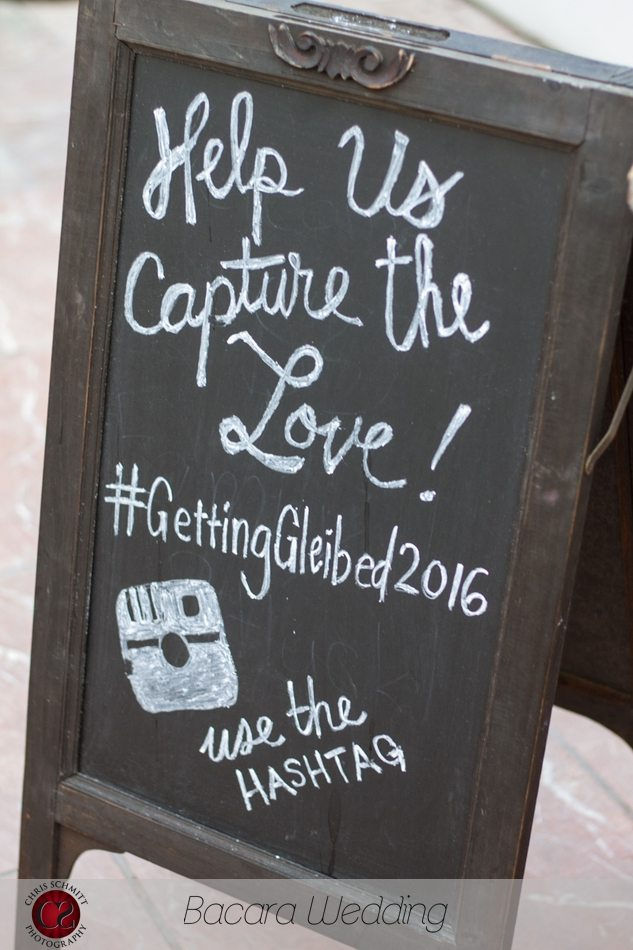 Help Us
Capture the
Love!
#GettingGleibed2016
use the
HASHTAG
CHRIS SCHMITT
PHOTOGRAPHY
Bacara Wedding